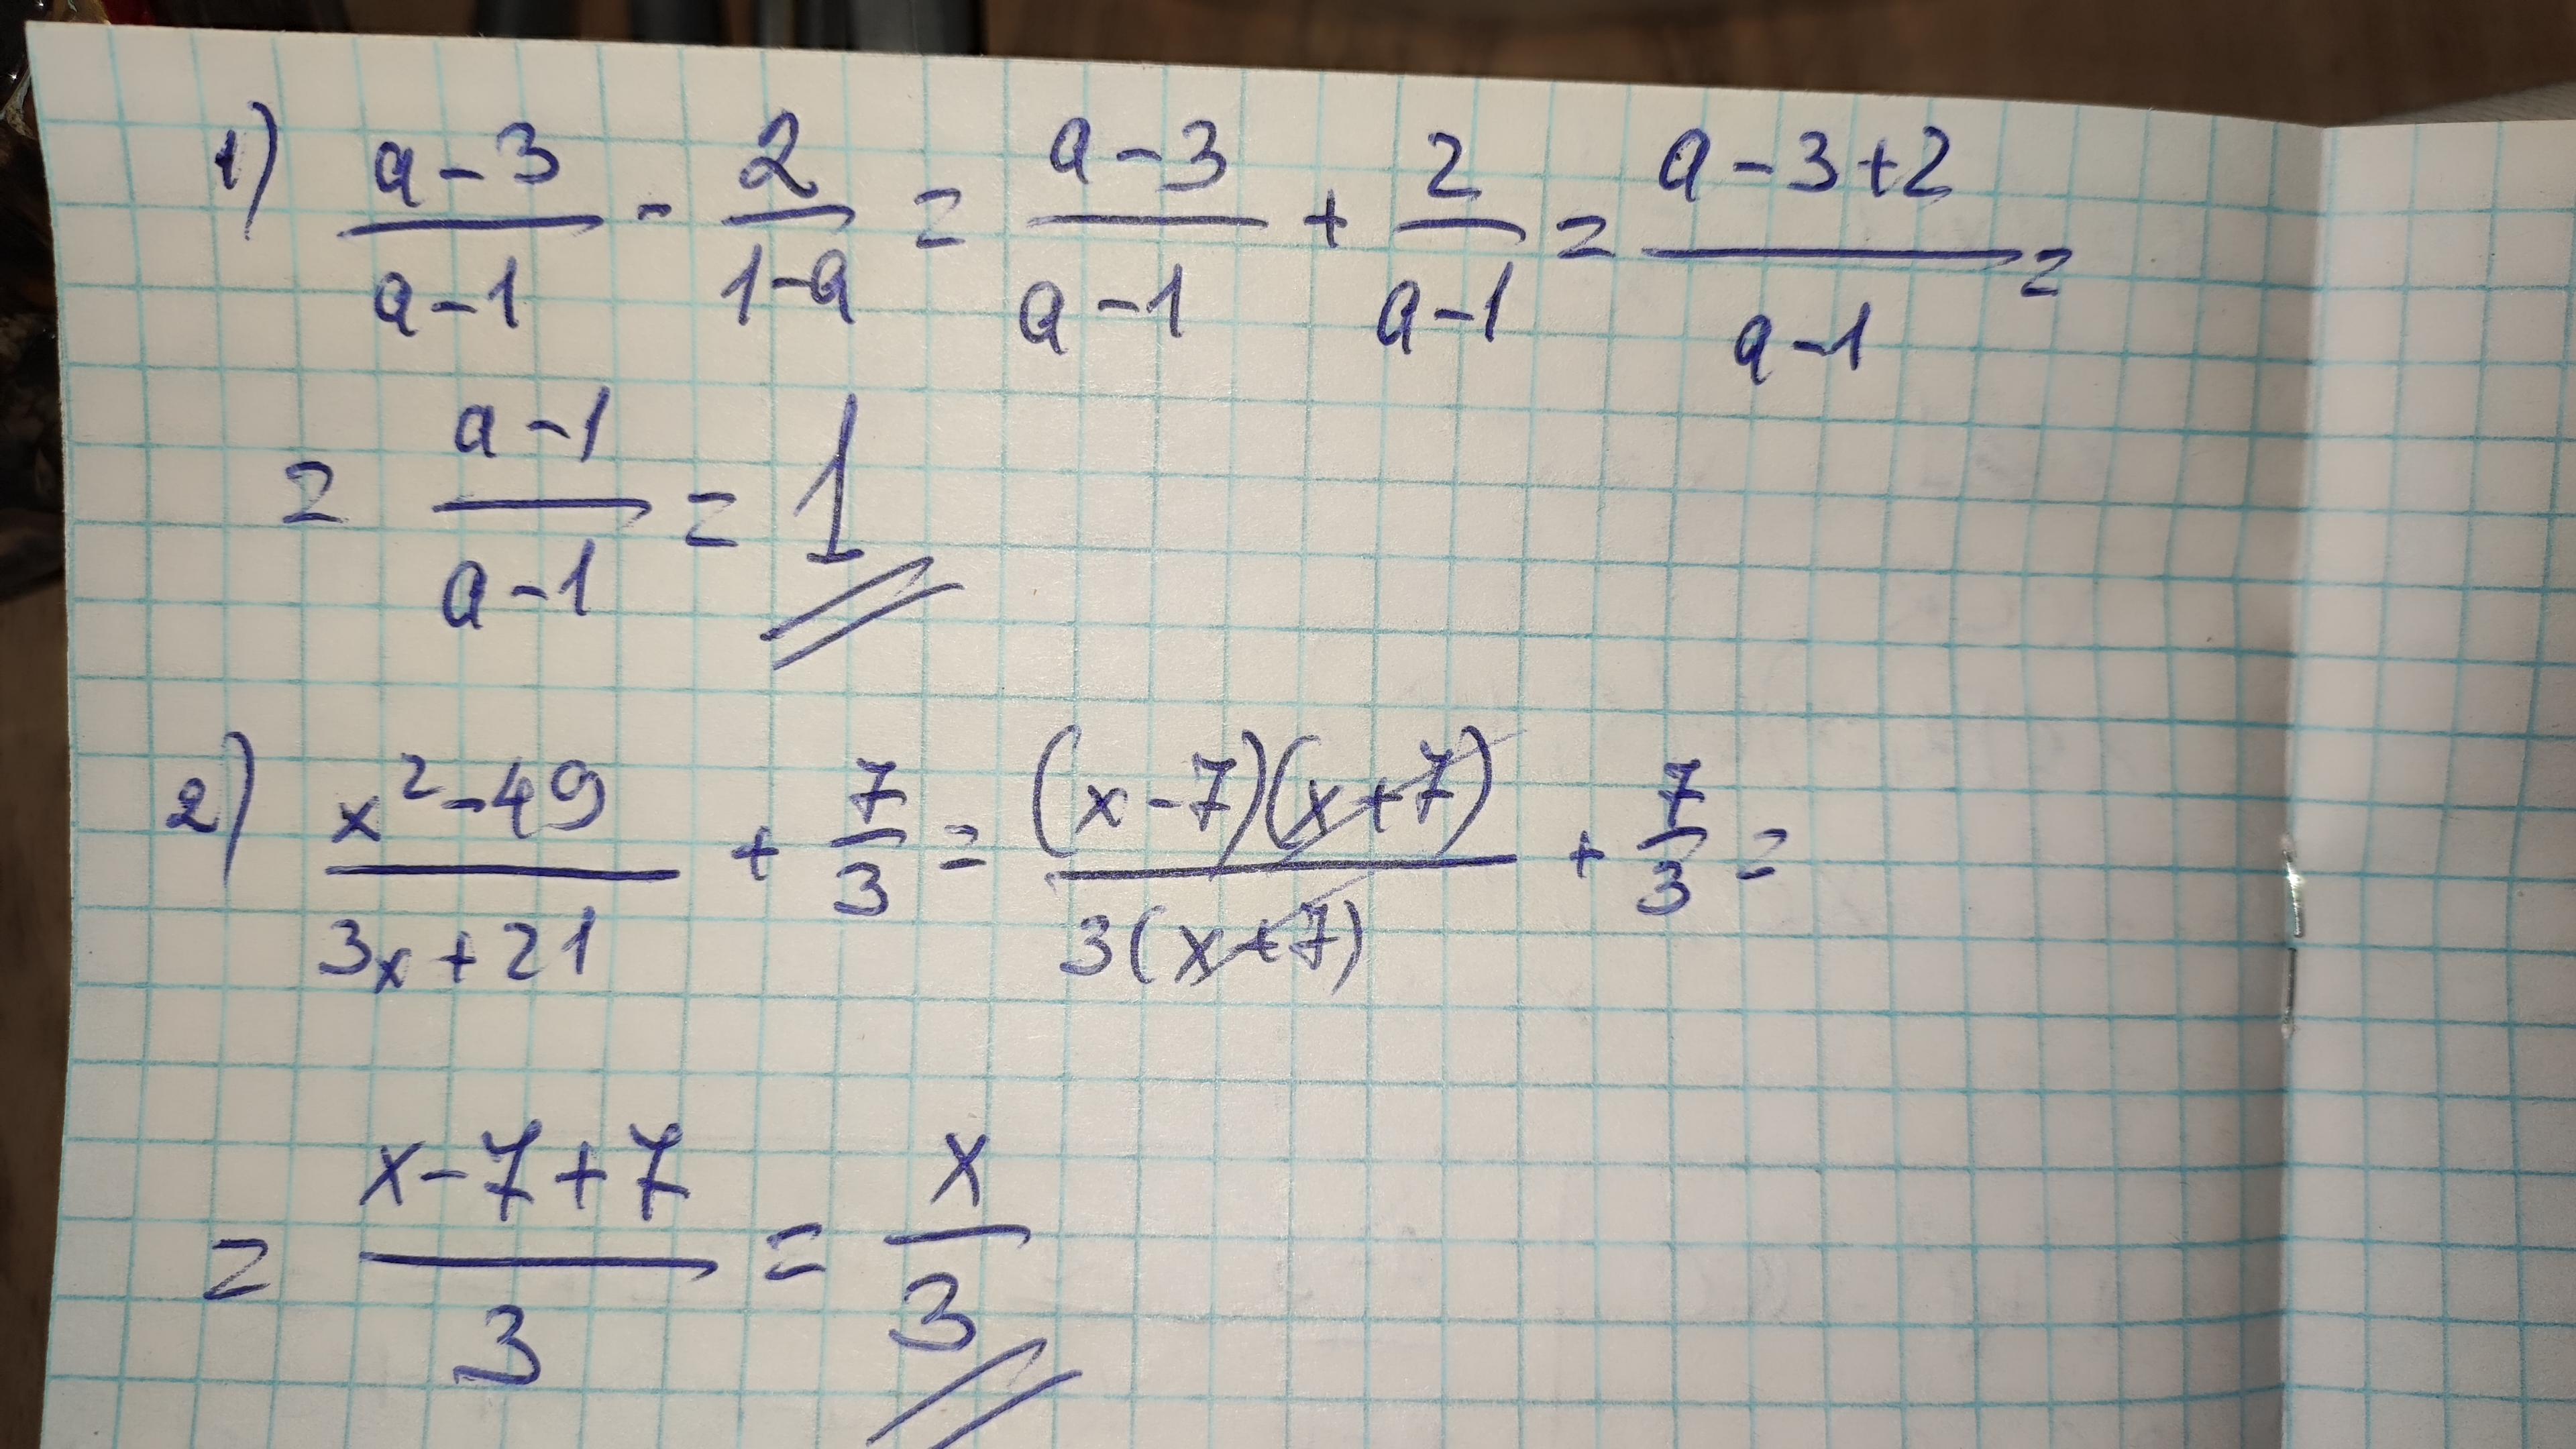 1) (a-3)/(a-1) - 2/(1-a) = (a-3)/(a-1) + 2/(a-1) = (a-3+2)/(a-1) =
= (a-1)/(a-1) = 1
2) (x²-49)/(3x+21) + 7/3 = ((x-7)(x+7))/(3(x+7)) + 7/3 =
= (x-7+7)/3 = x/3